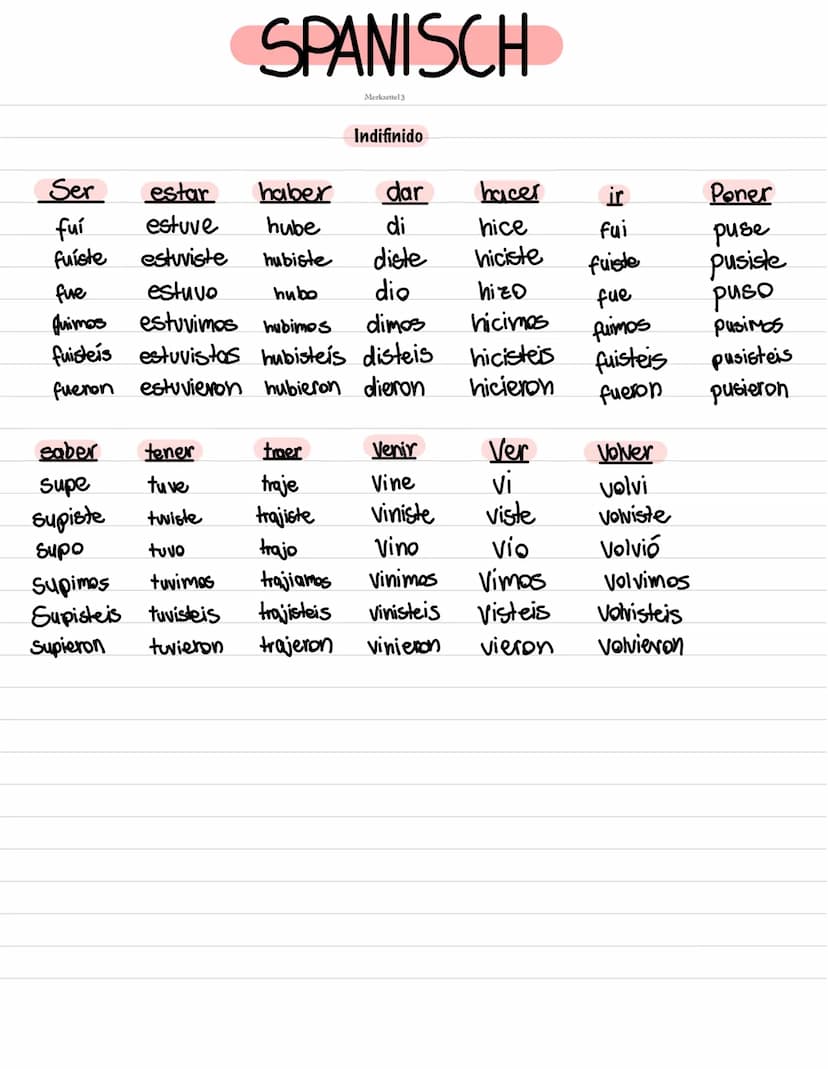 SPANISCH
Merkzettel 3
Indifinido
Ser estar haber dar hacer ir Poner
fuí estuve hube di hice fui puse
fuíste estuviste hubiste diste hiciste fuiste pusiste
fue estuvo hubo dio hizo fue puso
fuimos estuvimos hubimos dimos hicimos fuimos pusimos
fuisteís estuvistas hubisteís disteis hicisteis fuisteis pusisteis
fueron estuvieron hubieron dieron hicieron fueron pusieron
saber tener traer Venir Ver Volver
supe tuve traje Vine vi volvi
supiste tuviste trajiste Viniste viste volviste
supo tuvo trajo Vino vío Volvió
supimos tuvimos trajiamos Vinimos Vimos Volvimos
Supisteis tuvisteis trajisteis vinisteis Visteis Volvisteis
supieron tuvieron trajeron vinieron vieron volvieron